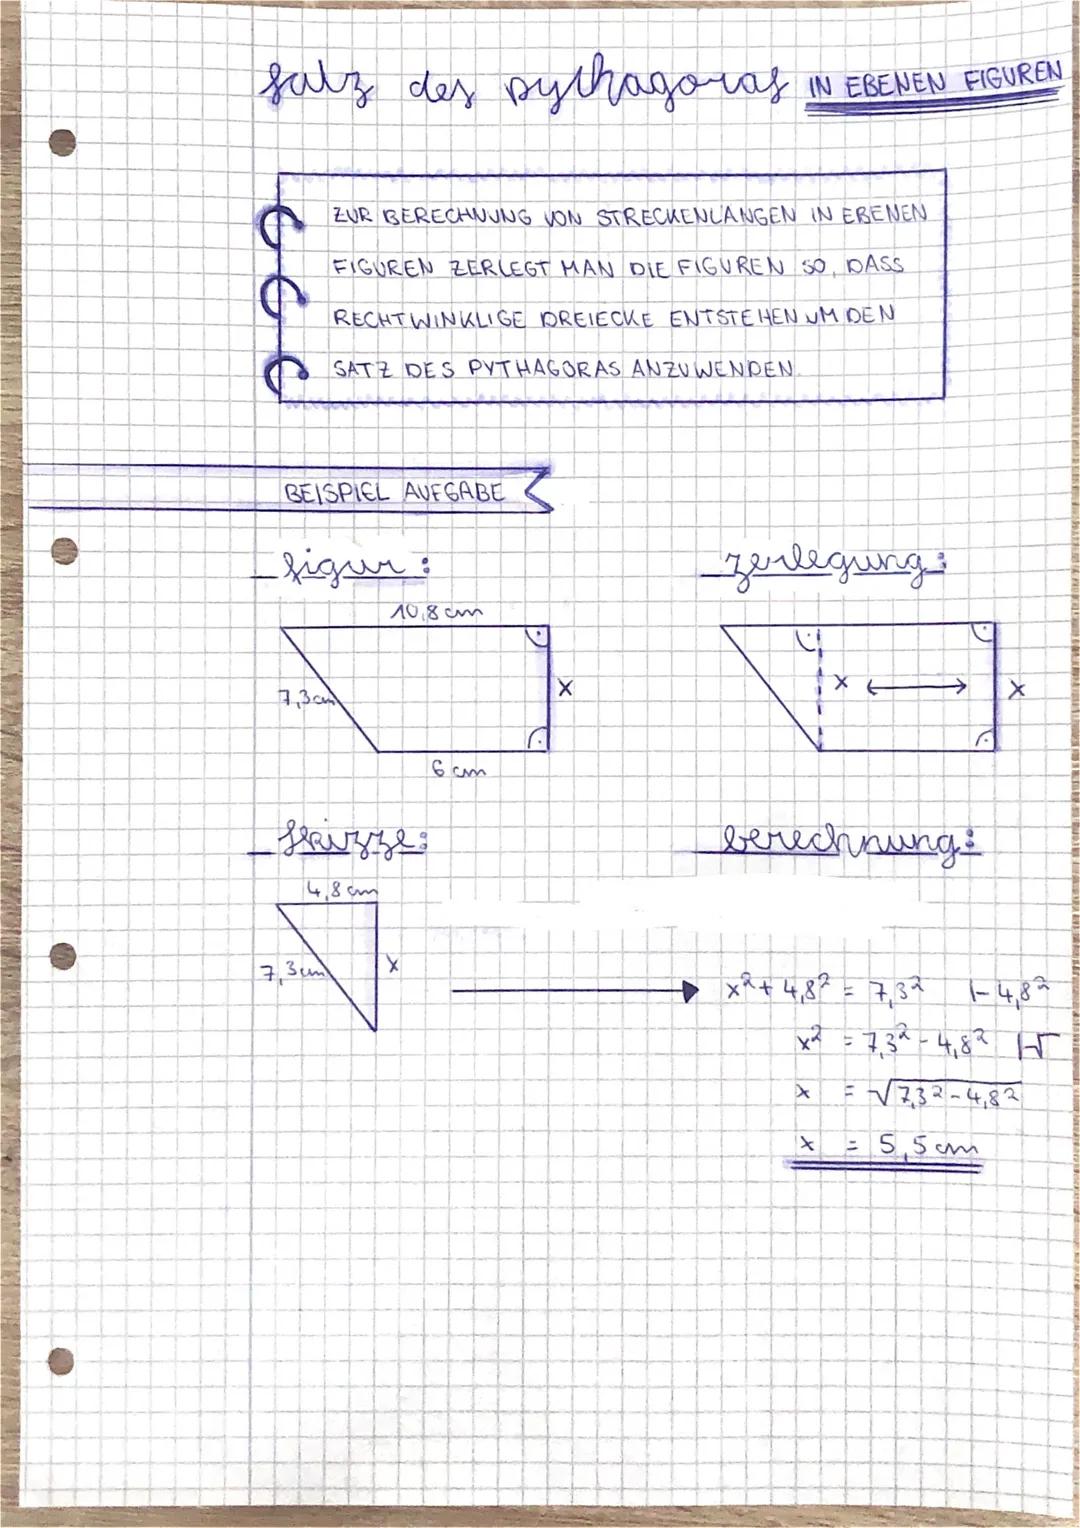 satz des pythagoras IN EBENEN FIGUREN
ZUR BERECHNUNG VON STRECKENLÄNGEN IN EBENEN
FIGUREN ZERLEGT MAN DIE FIGUREN SO, DASS
RECHTWINKLIGE DREIECKE ENTSTEHEN UM DEN
SATZ DES PYTHAGORAS ANZUWENDEN.
BEISPIEL AUFGABE
figur:
10,8 cm
7,3 cm
x
6 cm
zerlegung:
x
x
skizze:
4,8 cm
7,3 cm
x
berechnung:
x² + 4,8² = 7,3² |- 4,8²
x² = 7,3² - 4,8² |√
x = √7,3² - 4,8²
x = 5,5 cm